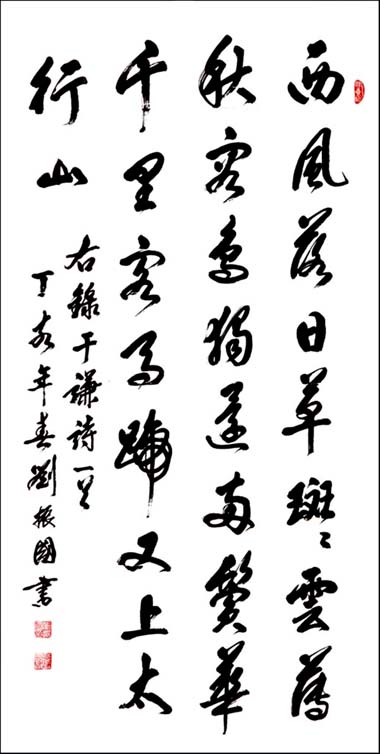 西風落日草斑々雲薄
秋容鳥獨還兩鬢華
千里客馬蹄又上太
行山
右錄于謙詩一首
丁亥年春劉振國書